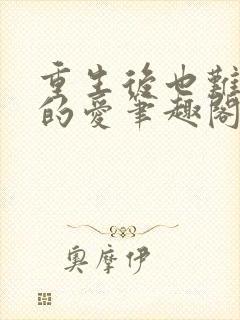 重生後也難
的愛筆趣閣
奧摩伊